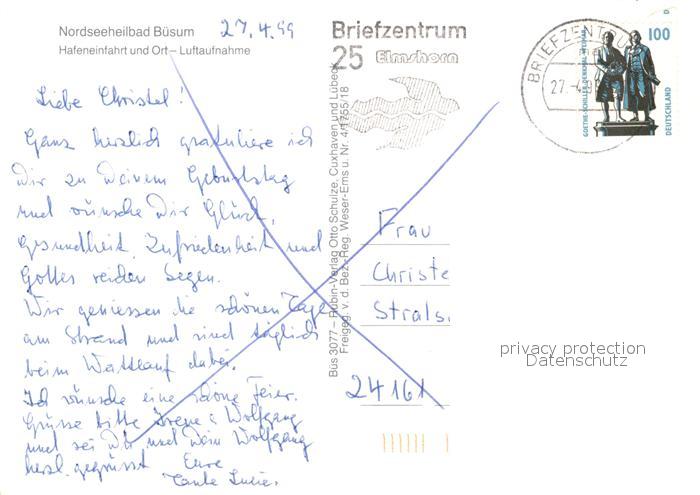 Nordseeheilbad Büsum 27.4.99
Hafeneinfahrt und Ort – Luftaufnahme
Liebe Christel!
Ganz herzlich gratuliere ich
Dir zu Deinem Geburtstag
und wünsche Dir Glück,
Gesundheit, Zufriedenheit und
Gottes reichen Segen.
Wir geniessen die schönen Tage
am Strand und sind täglich
beim Wattlauf dabei.
Ich wünsche eine schöne Feier.
Grüsse bitte Irene & Wolfgang
und sei Du und Dein Wolfgang
herzl. gegrüsst Eure
Tante Lucie.
Büs 3077 – Rubin-Verlag Otto Schulze, Cuxhaven und Lübeck
Freigeg. v. d. Bez.-Reg. Weser-Ems u. Nr. 4/1755/18
Briefzentrum
25 Elmshorn
BRIEFZENTRU
27.-4.9
GOETHE-SCHILLER-DENKMAL WEIMAR
100
DEUTSCHLAND
D
Frau
Christe
Strals.
24161
privacy protection
Datenschutz